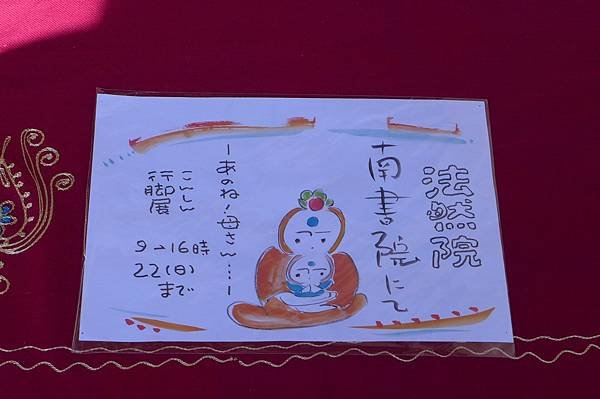 法然院
南書院にて
－あのね！母さん…－
こんしん
行脚展
9→16時
22(日)
まで